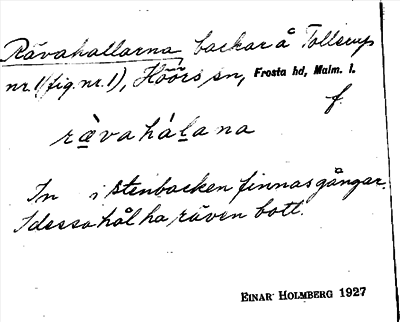 Rävahallarna, backar å Tollerup
nr. 1 (fig. nr. 1), Höörs sn, Frosta hd, Malm. l.
f.
rävahálana
In i stenbacken finnas gångar.
I dessa hål ha räven bott.
EINAR HOLMBERG 1927